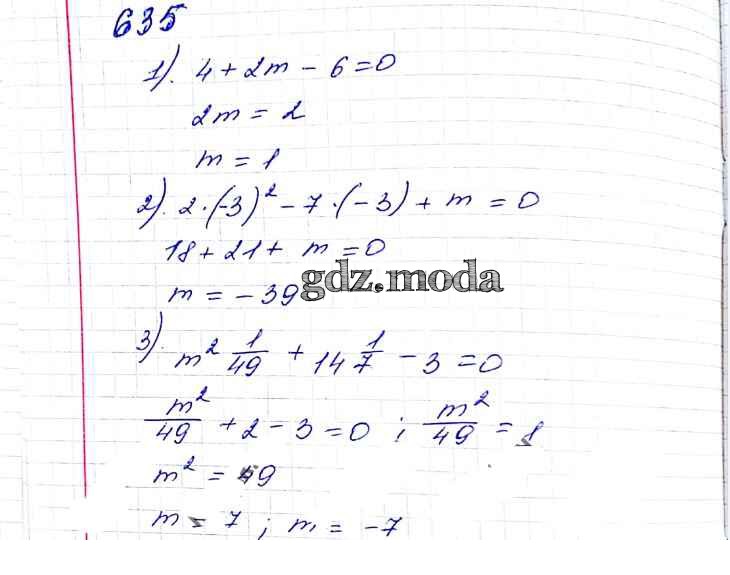 635
1). 4 + 2m - 6 = 0
2m = 2
m = 1
2). 2·(-3)² - 7·(-3) + m = 0
18 + 21 + m = 0
m = - 39
gdz.moda
3). m² 1/49 + 14 1/7 - 3 = 0
m²/49 + 2 - 3 = 0 ; m²/49 = 1
m² = 49
m = 7 ; m = -7